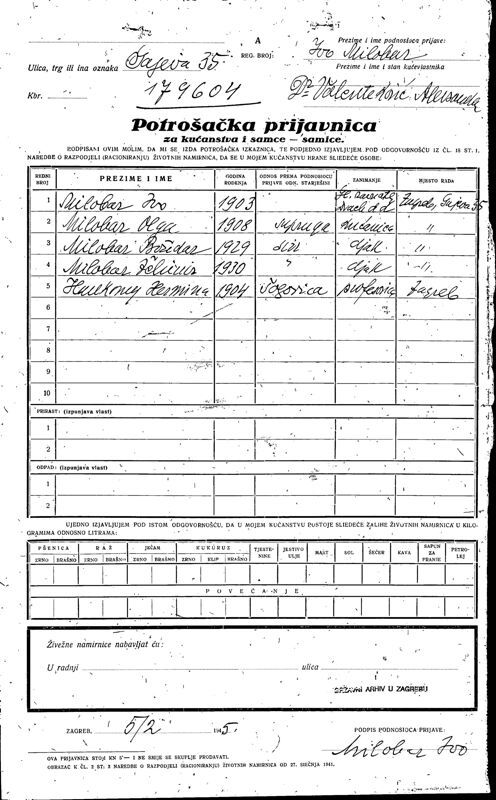 A
Prezime i ime podnosioca prijave:
Ivo Milobar
Ulica, trg ili ina oznaka Gajeva 35 REG. BROJ:
Prezime i ime i stan kućevlastnika
Kbr. 179604 Dr Valenteković Aleksandar
Potrošačka prijavnica
za kućanstva i samce – samice.
PODPISANI OVIM MOLIM, DA MI SE IZDA POTROŠAČKA IZKAZNICA, TE PODJEDNO IZJAVLJUJEM POD ODGOVORNOŠĆU IZ ČL. 18 ST. 1.
NAREDBE O RAZPODJELI (RACIONIRANJU) ŽIVOTNIH NAMIRNICA, DA SE U MOJEM KUĆANSTVU HRANE SLIEDEĆE OSOBE:
REDNI BROJ PREZIME I IME GODINA RODENJA ODNOS PREMA PODNOSIOCU PRIJAVE ODN. STARJEŠINI ZANIMANJE MJESTO RADA
1 Milobar Ivo 1903 Zagreb, Gajeva 35
2 Milobar Olga 1908 supruga kućanica "
3 Milobar Božidar 1929 sin djak "
4 Milobar Želimir 1930 " djak "
5 Hermina 1904 profesorica Zagreb
6
7
8
9
10
PRIRAST: (izpunjava vlast)
1
2
ODPAD: (izpunjava vlast)
1
2
UJEDNO IZJAVLJUJEM POD ISTOM ODGOVORNOŠĆU, DA U MOJEM KUĆANSTVU POSTOJE SLIEDEĆE ZALIHE ŽIVOTNIH NAMIRNICA U KILO-
GRAMIMA ODNOSNO LITRAMA:
PŠENICA RAŽ JEČAM KUKURUZ TJESTE-NINE JESTIVO ULJE MAST SOL ŠEĆER KAVA SAPUN ZA PRANJE PETRO-LEJ
ZRNO BRAŠNO ZRNO BRAŠNO ZRNO BRAŠNO ZRNO KLIP BRAŠNO
POVEĆANJE
Živežne namirnice nabavljat ću:
U radnji ulica
DRŽAVNI ARHIV U ZAGREBU
ZAGREB, 5/2 1945. PODPIS PODNOSIOCA PRIJAVE:
Milobar Ivo
OVA PRIJAVNICA STOJI KN 5'— I NE SMIJE SE SKUPLJE PRODAVATI.
OBRAZAC K ČL. 3 ST. 3 NAREDBE O RAZPODJELI (RACIONIRANJU) ŽIVOTNIH NAMIRNICA OD 27. SIEČNJA 1941.